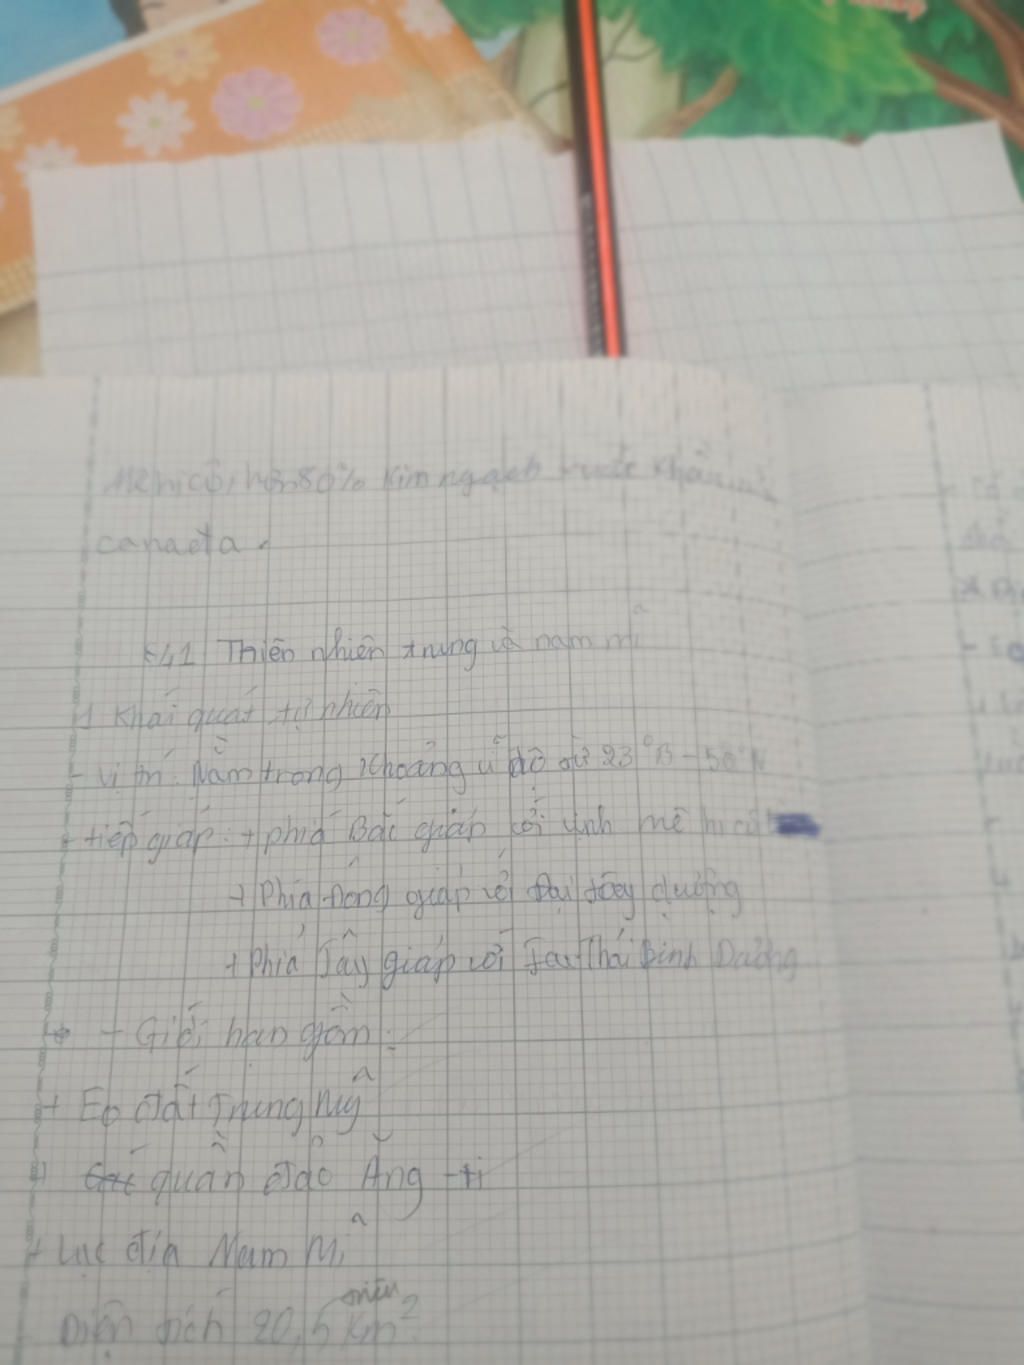 Mêhicô, hơn 80% kim ngạch xuất khẩu
canađa.
41 Thiên nhiên trung và nam mĩ
1 Khái quát tự nhiên
- vị trí: Nằm trong khoảng vĩ độ từ 23°B - 50°N
+ tiếp giáp: + phía Bắc giáp với vịnh mê hi cô
+ Phía Đông giáp với Đại tây dương
+ phía Tây giáp với Thái Bình Dương
- Giới hạn gồm:
+ Eo đất Trung Mỹ
quần đảo Ăng-ti
+ Lục địa Nam Mĩ
Diện tích 20,5 triệu km²